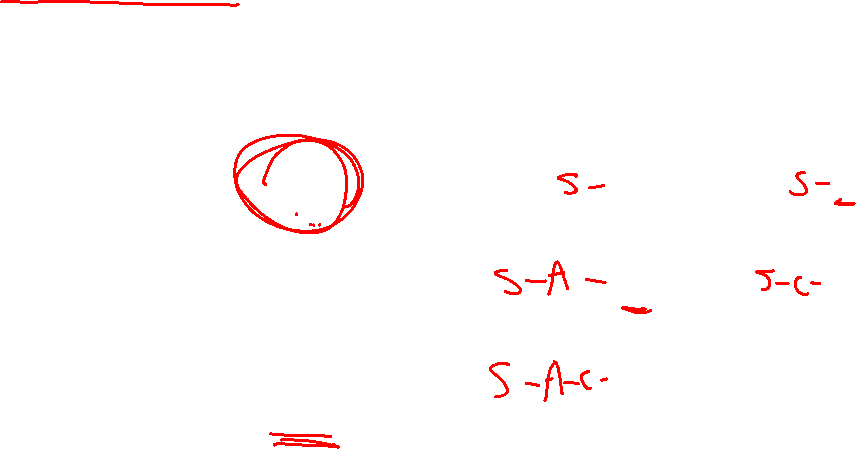 S- S-
S-A- S-C-
S-A-C-